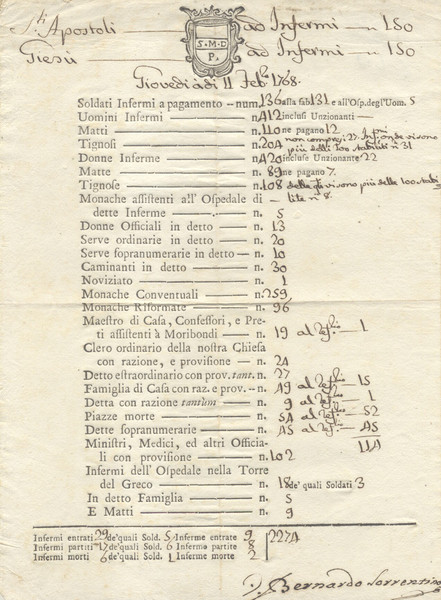 Sti Apostoli — ad Infermi — n 150
Giesù — ad Infermi — n 150
S·M·D
P.
Giovedì a di 11 Feb.o 1768.
Soldati Infermi a pagamento — num. 136 alla fab. 131 e all'Osp. degl'Uom. 5
Uomini Infermi — n. 412 inclusi Unzionanti —
Matti — n. 110 ne pagano 12
Tignosi — n. 204 non compresi 27 Infermi ve visono più delli 100 stabiliti n. 31
Donne Inferme — n. 420 incluse Unzionante 22
Matte — n. 89 ne pagano 7.
Tignose — n. 108 delle quali visono più delle 100 stabilite n. 8
Monache assistenti all' Ospedale di
dette Inferme — n. 5
Donne Officiali in detto — n. 13
Serve ordinarie in detto — n. 20
Serve sopranumerarie in detto — n. 10
Caminanti in detto — n. 30
Noviziato — n. 1
Monache Conventuali — n. 259
Monache Riformate — n. 96
Maestro di Casa, Confessori, e Preti assistenti à Moribondi — n. 19 — 1
Clero ordinario della nostra Chiesa
con razione, e provisione — n. 24
Detto estraordinario con prov. tant. n. 27
Famiglia di Casa con raz. e prov. — n. 49 — 15
Detta con razione tantùm — n. 9 — 1
Piazze morte — n. 54 — 52
Dette sopranumerarie — n. 45 — 45
Ministri, Medici, ed altri Officiali con provisione — n. 102 114
Infermi dell' Ospedale nella Torre
del Greco — n. 18 de' quali Soldati 3
In detto Famiglia — n. 5
E Matti — n. 9
Infermi entrati 29 de'quali Sold. 5 Inferme entrate 9
Infermi partiti 17 de'quali Sold. 6 Inferme partite 8
Infermi morti 6 de'quali Sold. 1 Inferme morte 2
2274
Bernardo Sorrentino